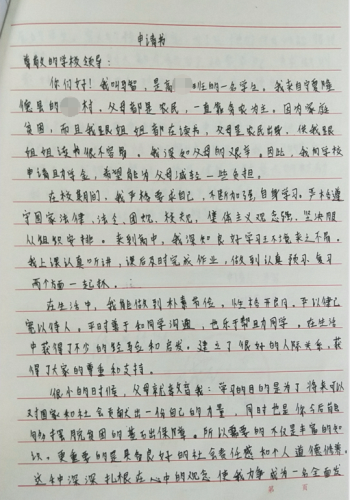 申请书
尊敬的学校领导:
你们好!我叫 智,是高 班的一名学生,我来自宁夏隆
德县的 村,父母都是农民,一直靠务农为主。因为家庭
贫困,而且我跟姐姐都在读书,父母是农民出身,供我跟
姐姐读书很不容易,我深知父母的艰辛。因此,我向学校
申请助学金,希望能为父母减轻一些负担。
在校期间,我严格要求自己,不断加强自身学习。严格遵
守国家法律、法令、团规、校规,集体主义观念强,坚决服
从组织安排。来到高中,我深知良好学习环境来之不易。
我上课认真听讲,课后及时完成作业,做到认真预习、复习
两个方面一起抓。
在生活中,我能做到朴素节俭,性格开朗,严以律己
宽以待人。平时善于和同学沟通,也乐于帮助同学。在生活
中获得了不少的经验和启发。建立了很好的人际关系,获
得了大家的尊重和支持。
很小的时候,父母就教育我:学习的目的是为了将来可以
对国家和社会贡献出一份自己的力量,同时也是你今后能
够摆脱贫困的基石出保障。所以需要的不仅是丰富的知
识。更重要的是具备良好的社会责任感和个人道德修养。
这种深深扎根在心中的观念,使我力争成为一名全面发